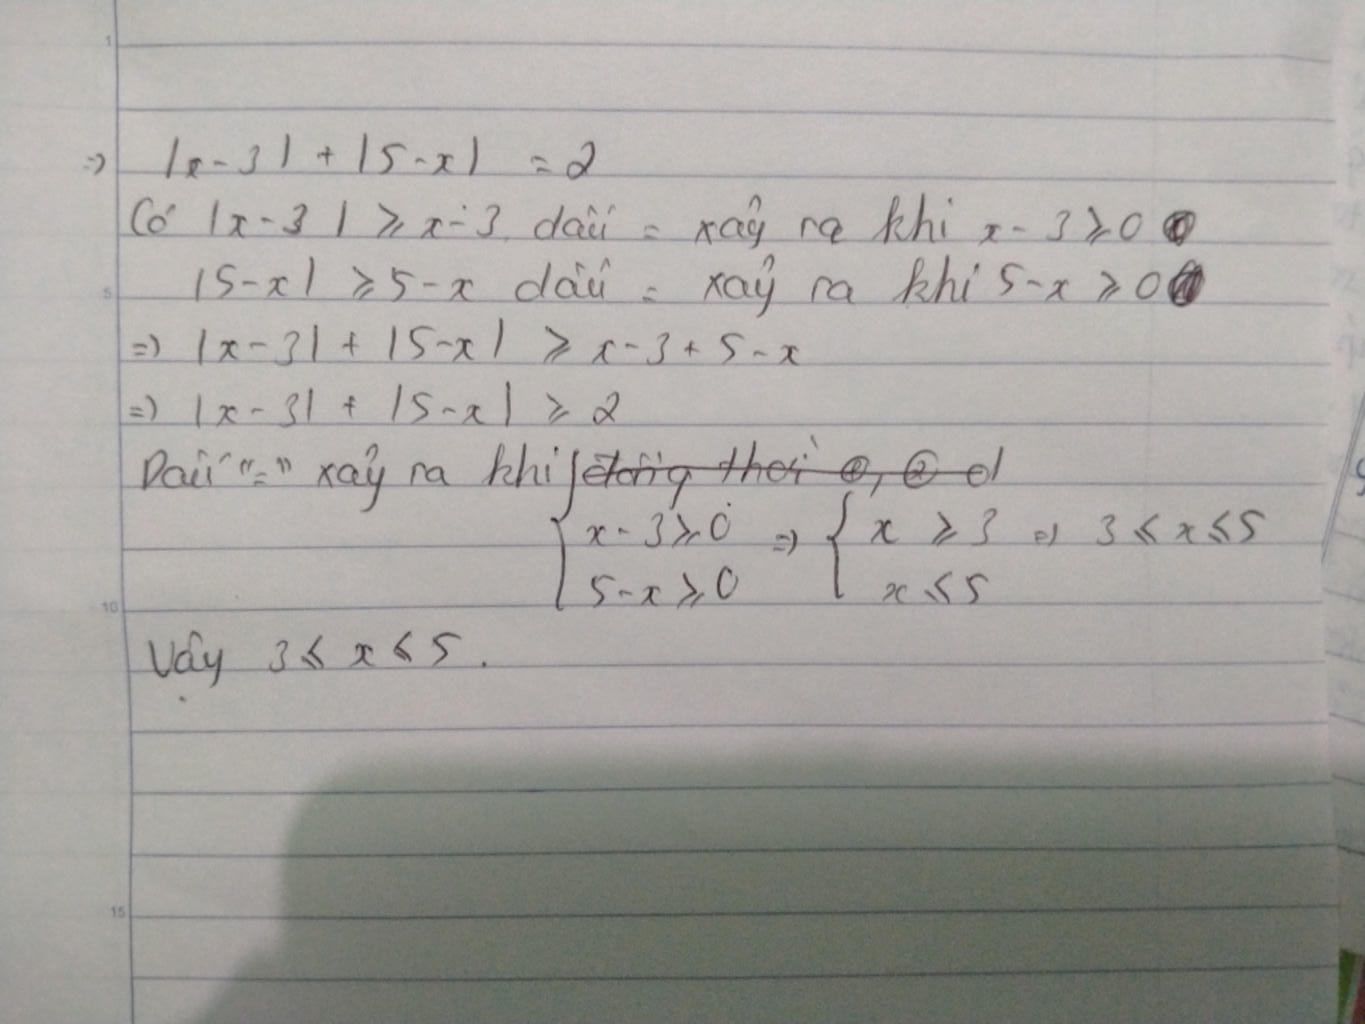 1
=> |x-3| + |5-x| = 2
Có |x-3| ⩾ x-3. dấu = xảy ra khi x-3⩾0
5
|5-x| ⩾ 5-x dấu = xảy ra khi 5-x ⩾0
=> |x-3| + |5-x| ⩾ x-3+5-x
=> |x-3| + |5-x| ⩾ 2
Dấu "=" xảy ra khi đồng thời ①, ② đ
x-3⩾0 => x ⩾ 3 => 3 ⩽ x ⩽ 5
5-x⩾0 x ⩽ 5
10
Vậy 3 ⩽ x ⩽ 5.
15